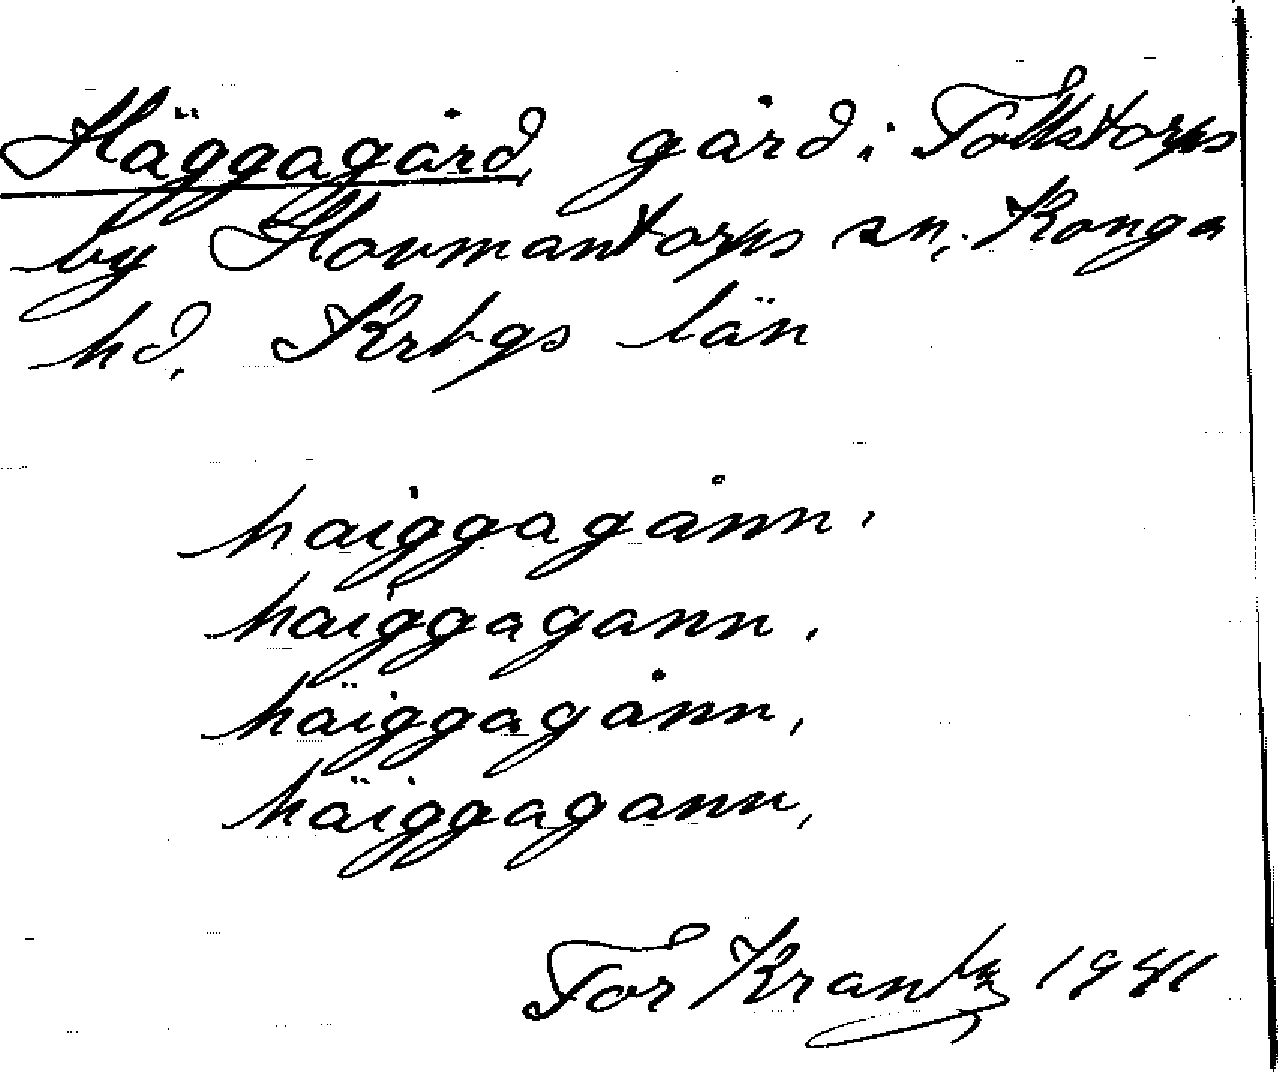 Häggagård, gård i Tollstorps
by Hovmantorps sn, Konga
hd, Krbgs län
haiggagånn,
haiggagann,
häiggagånn,
häiggagann,
Tor Krantz 1941